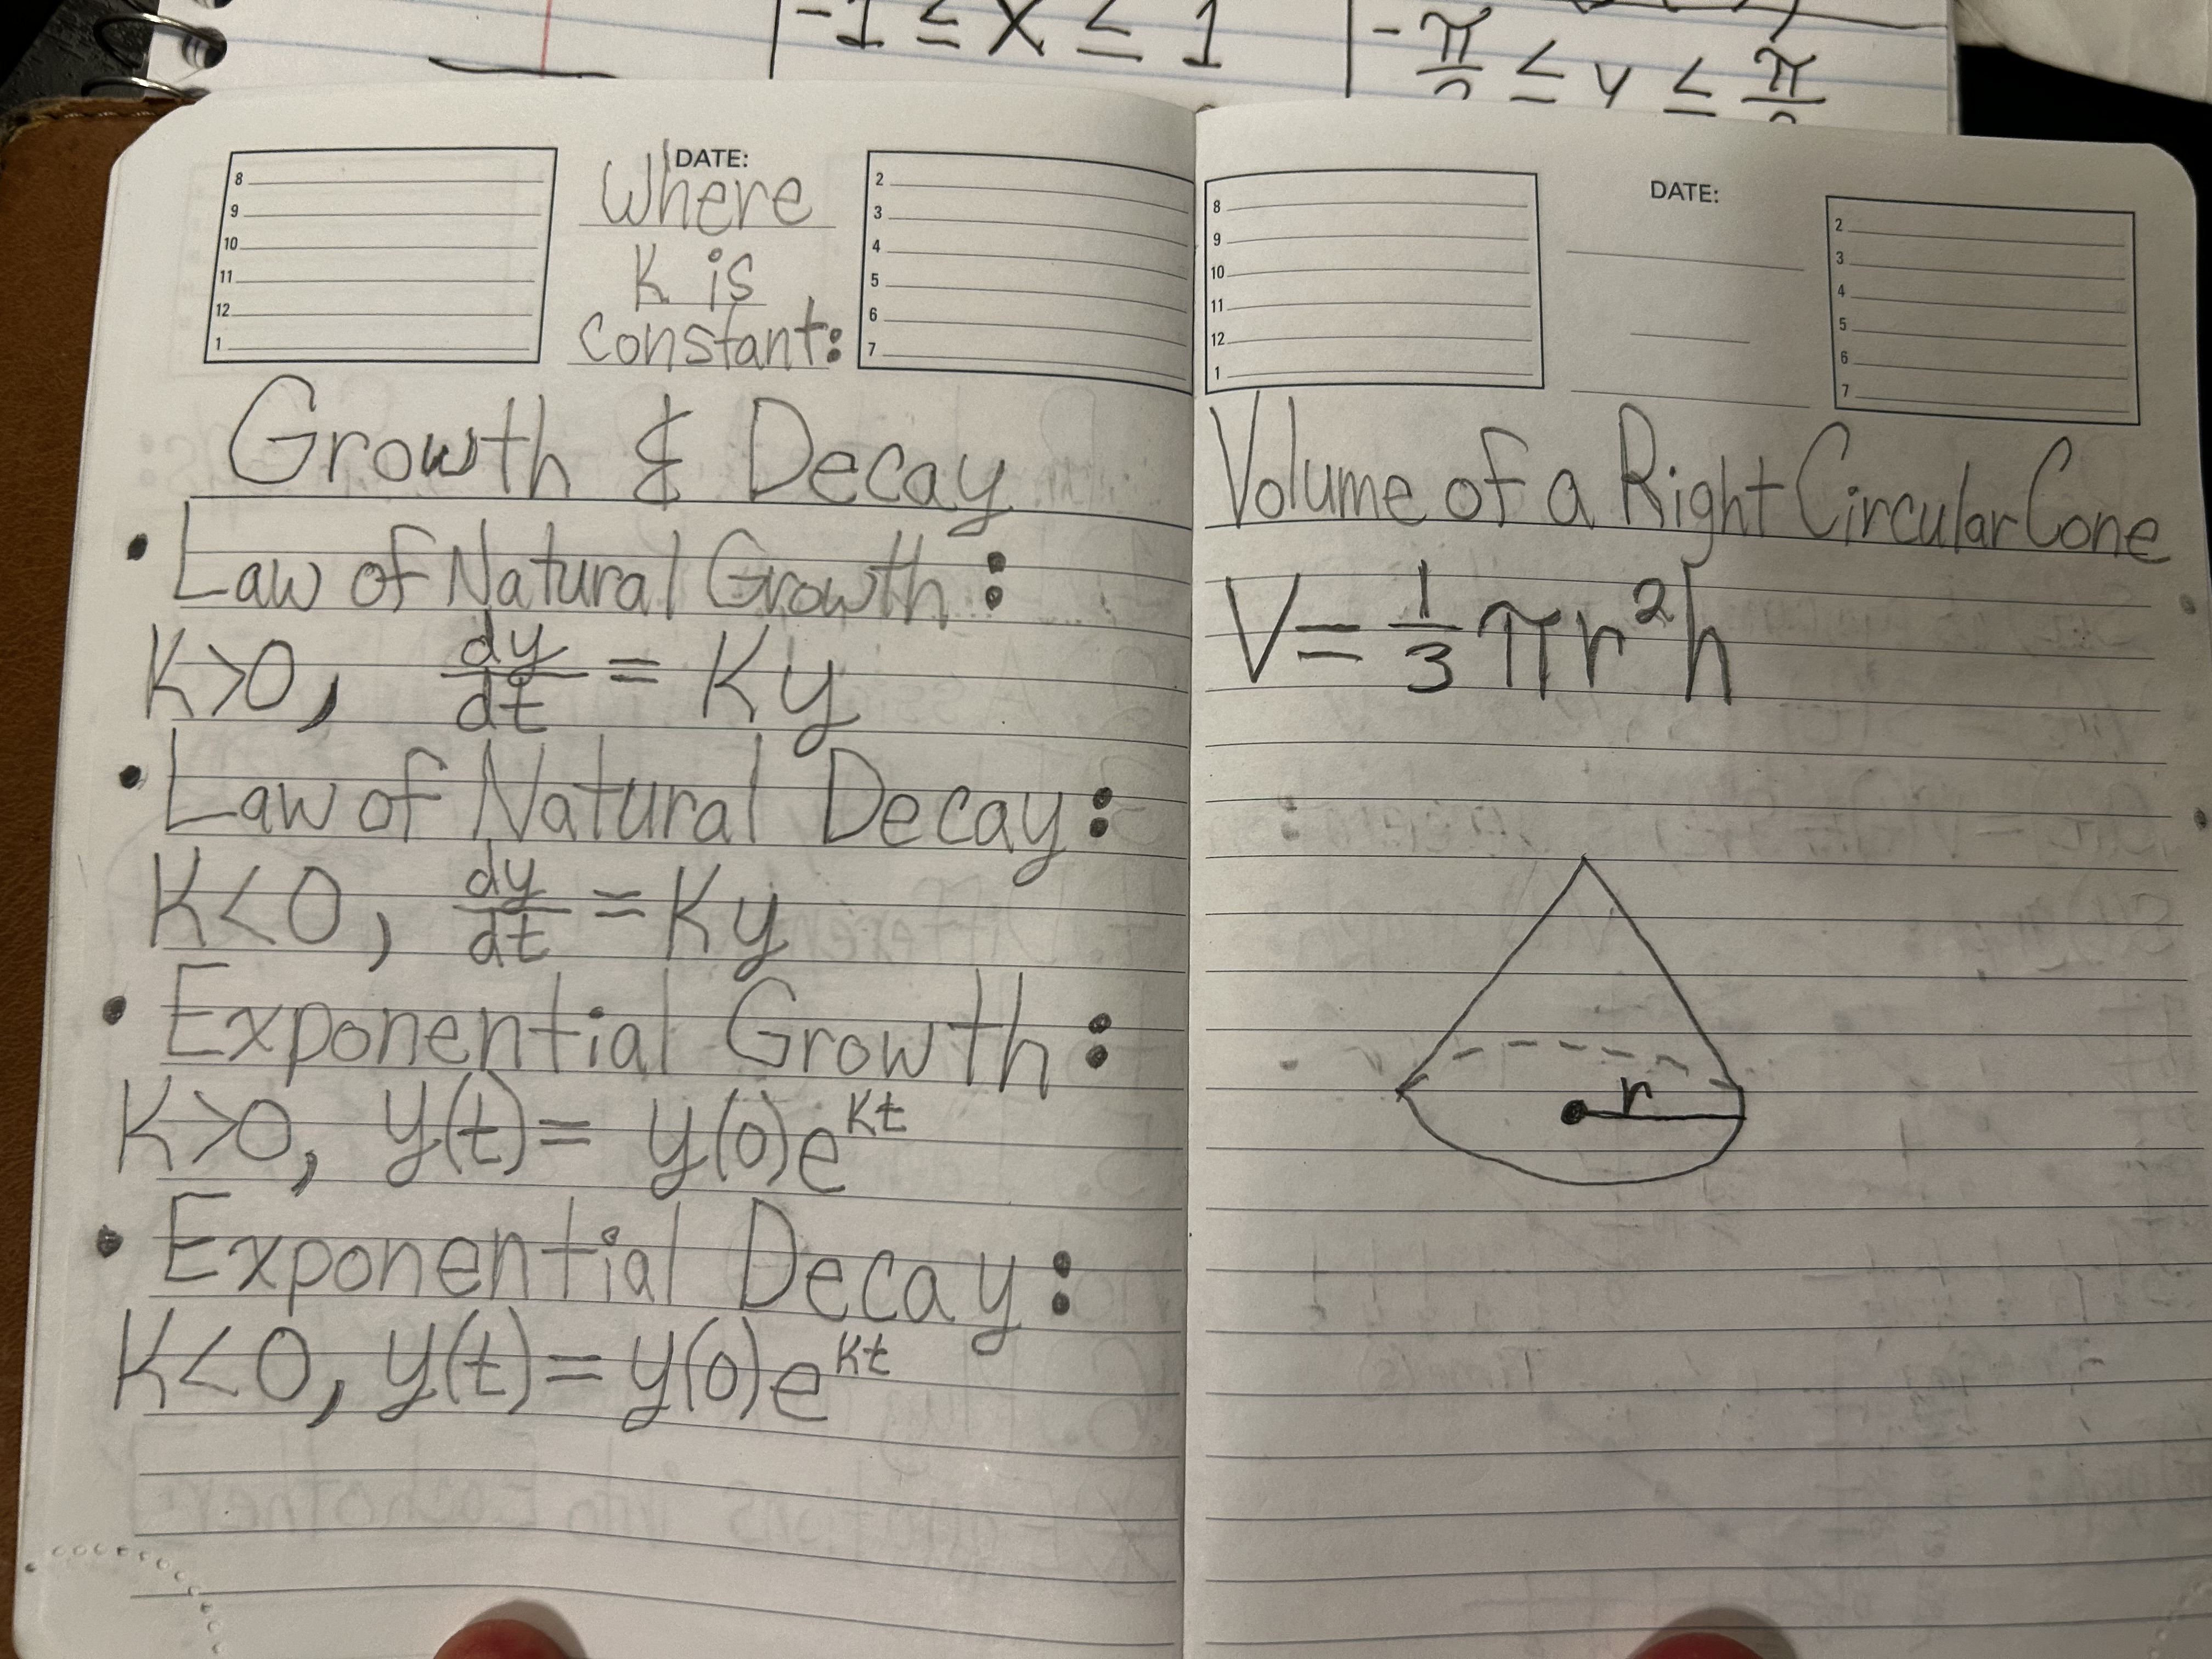 DATE:
Where
K is
constant:
8
9
10
11
12
1
2
3
4
5
6
7
Growth & Decay
• Law of Natural Growth:
K>0, dy/dt = Ky
• Law of Natural Decay:
K<0, dy/dt = Ky
• Exponential Growth:
K>0, y(t) = y(0)e^Kt
• Exponential Decay:
K<0, y(t) = y(0)e^Kt
DATE:
8
9
10
11
12
1
2
3
4
5
6
7
Volume of a Right Circular Cone
V = 1/3 πr²h
r
-1 ≤ x ≤ 1